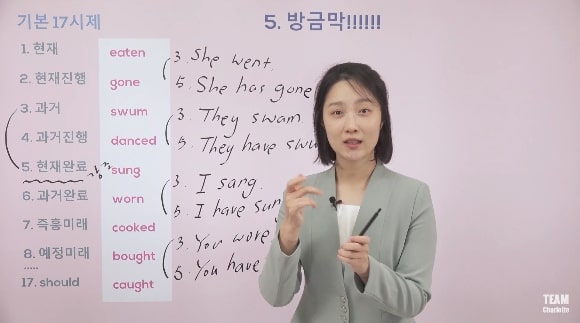 기본 17시제
1. 현재
2. 현재진행
3. 과거
4. 과거진행
5. 현재완료
6. 과거완료
7. 즉흥미래
8. 예정미래
17. should
eaten
gone
swum
danced
sung
worn
cooked
bought
caught
5. 방금막!!!!!!
3. She went.
5. She has gone
3. They swam
5. They have swu
3. I sang.
5. I have sun
3. You wore
5. You have
TEAM
Charlotte